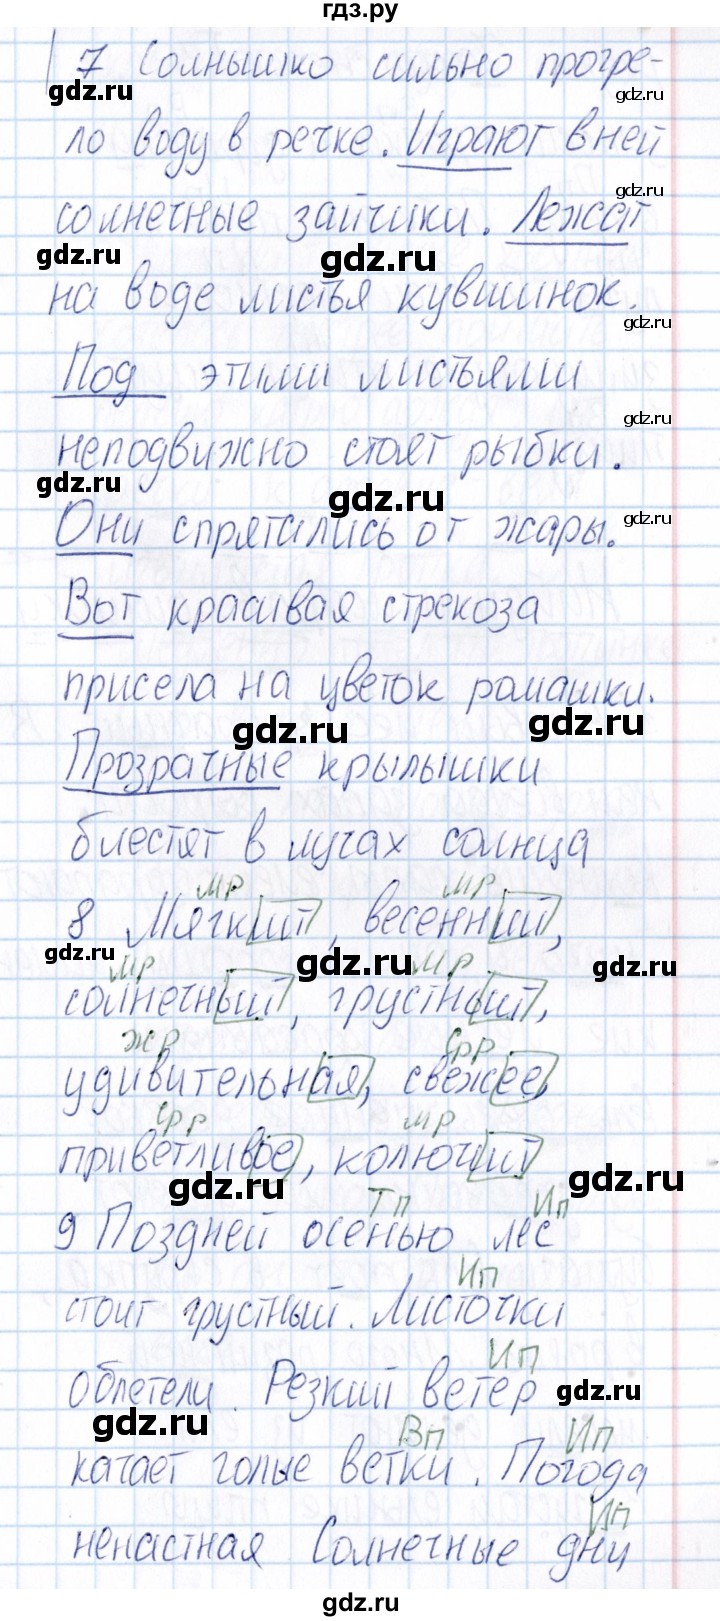 гдз.ру
7 Солнышко сильно прогре-
gdz.ru gdz.ru
ло воду в речке. Играют в ней
gdz.ru
солнечные зайчики. Лежат
gdz.ru gdz.ru
на воде листья кувшинок.
gdz.ru
Под этими листьями
gdz.ru
неподвижно стоят рыбки.
gdz.ru gdz.ru gdz.ru
Они спрятались от жары.
Вот красивая стрекоза
присела на цветок ромашки.
gdz.ru gdz.ru
Прозрачные крылышки
блестят в лучах солнца
мр мр
8 Мягкий, весенний,
gdz.ru gdz.ru gdz.ru
мр мр
солнечный, грустный,
жр срр
удивительная, свежее,
срр мр
приветливое, колючий
gdz.ru gdz.ru
Тп Ип
9 Поздней осенью лес
Ип
стоит грустный. Листочки
Ип
облетели. Резкий ветер
gdz.ru gdz.ru
Вп Ип
качает голые ветки. Погода
Ип
ненастная Солнечные дни
gdz.ru